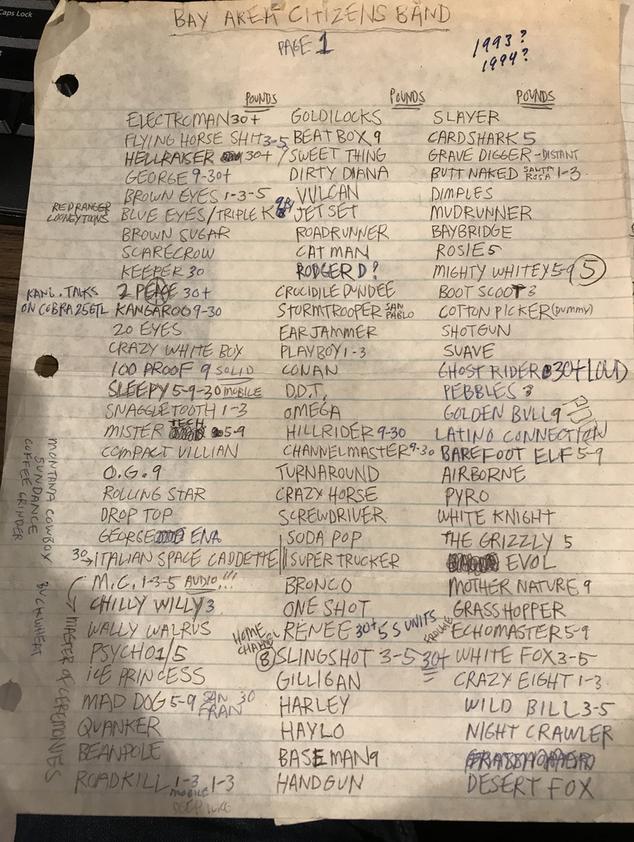 Caps Lock
BAY AREA CITIZENS BAND
PAGE 1
1993?
1994?
POUNDS
ELECTROMAN 30+
FLYING HORSE SHIT 3-5
HELLRAISER 30+
GEORGE 9-30+
BROWN EYES 1-3-5
RED RANGER
LOONEYTOONS
BLUE EYES/TRIPLE K
BROWN SUGAR
SCARECROW
KEEPER 30
2 PEACE 30+
KANG. TALKS
ON COBRA 25GTL
KANGAROO 9-30
20 EYES
CRAZY WHITE BOY
100 PROOF 9 SOLID
SLEEPY 5-9-30 MOBILE
SNAGGLETOOTH 1-3
MISTER TECH 5-9
COMPACT VILLIAN
O.G. 9
ROLLING STAR
DROP TOP
GEORGE ENA
30 ITALIAN SPACE CADDETTE
M.C. 1-3-5 AUDIO!!!
CHILLY WILLY 3
WALLY WALRUS
PSYCHO 1/5
ICE PRINCESS
MAD DOG 5-9 SAN FRAN 30
QUANKER
BEANPOLE
ROADKILL 1-3 1-3
mobile
MONTANA COWBOY
SUNDANCE
COFFEE GRINDER
BUCKWHEAT
MASTER OF CEREMONIES
POUNDS
GOLDILOCKS
BEAT BOX 9
SWEET THING
DIRTY DIANA
VULCAN
JET SET
ROADRUNNER
CAT MAN
RODGER D?
CROCIDILE DUNDEE
STORMTROOPER SAN PABLO
EAR JAMMER
PLAYBOY 1-3
CONAN
D.D.T.
OMEGA
HILLRIDER 9-30
CHANNELMASTER 9-30
TURNAROUND
CRAZY HORSE
SCREWDRIVER
SODA POP
SUPER TRUCKER
BRONCO
ONE SHOT
RENEE 30+ 5 S UNITS
HOME CHANNEL
8 SLINGSHOT 3-5 30+
GILLIGAN
HARLEY
HAYLO
BASEMAN 9
HANDGUN
POUNDS
SLAYER
CARDSHARK 5
GRAVE DIGGER -DISTANT
BUTT NAKED SANTA ROSA 1-3
DIMPLES
MUDRUNNER
BAYBRIDGE
ROSIE 5
MIGHTY WHITEY 5-9 5
BOOT SCOOT 3
COTTON PICKER (DUMMY)
SHOTGUN
SUAVE
GHOST RIDER 30+ LOUD
PEBBLES 3
GOLDEN BULL 9
LATINO CONNECTION
BAREFOOT ELF 5-9
AIRBORNE
PYRO
WHITE KNIGHT
THE GRIZZLY 5
EVOL
MOTHER NATURE 9
GRASSHOPPER
ECHOMASTER 5-9
WHITE FOX 3-5
CRAZY EIGHT 1-3
WILD BILL 3-5
NIGHT CRAWLER
DESERT FOX